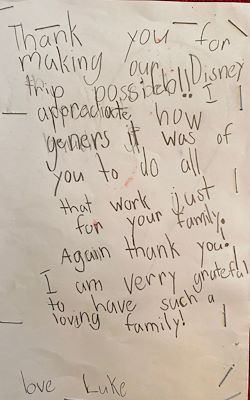 Thank you for
making our Disney
trip possible!! I
appradiate how
geners it was of
you to do all
that work just
for your family.
Again thank you!
I am verry grateful
to have such a
loving family!
love Luke